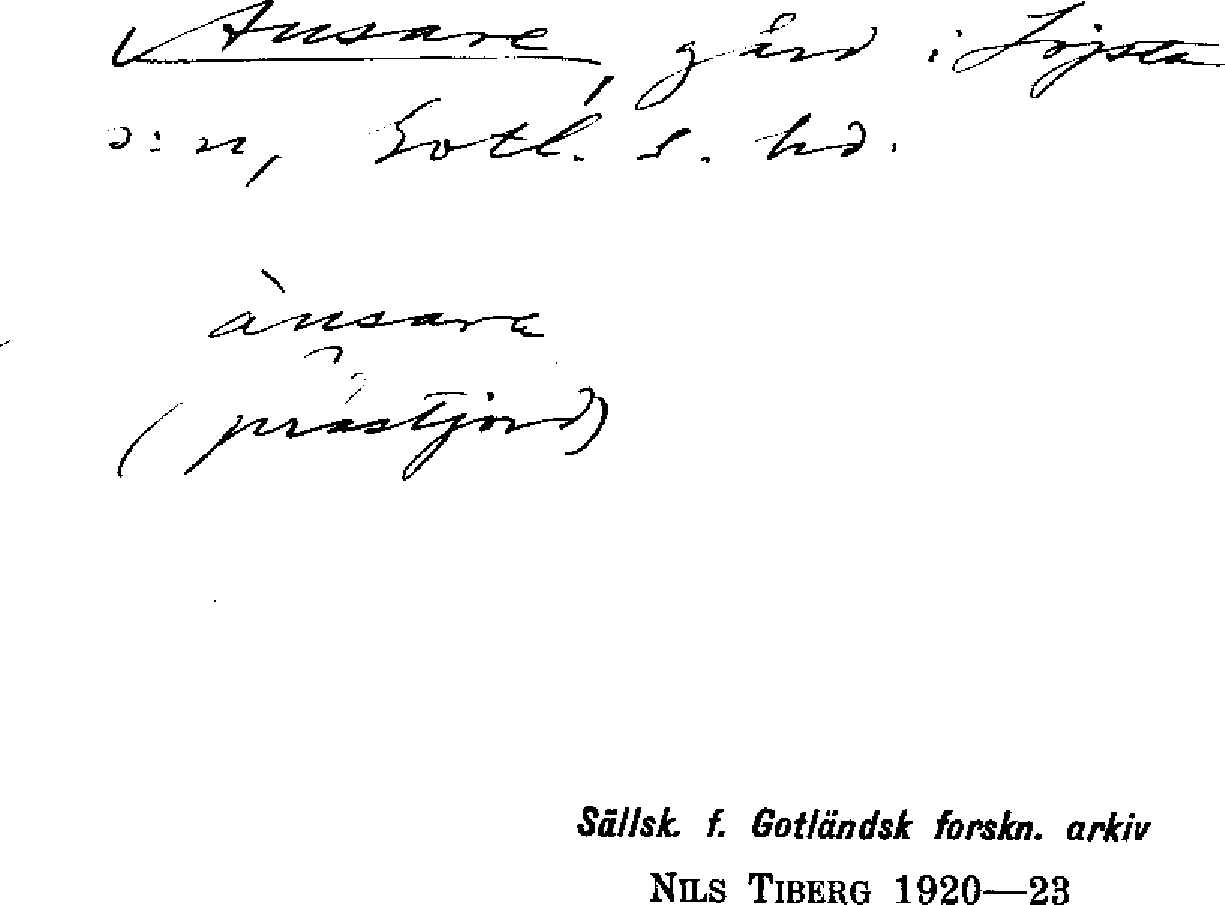 Ansare, gård i Lojsta
s:n, Gotl. s. hd.
ànsare
(prästjord)
Sällsk. f. Gotländsk forskn. arkiv
NILS TIBERG 1920—23